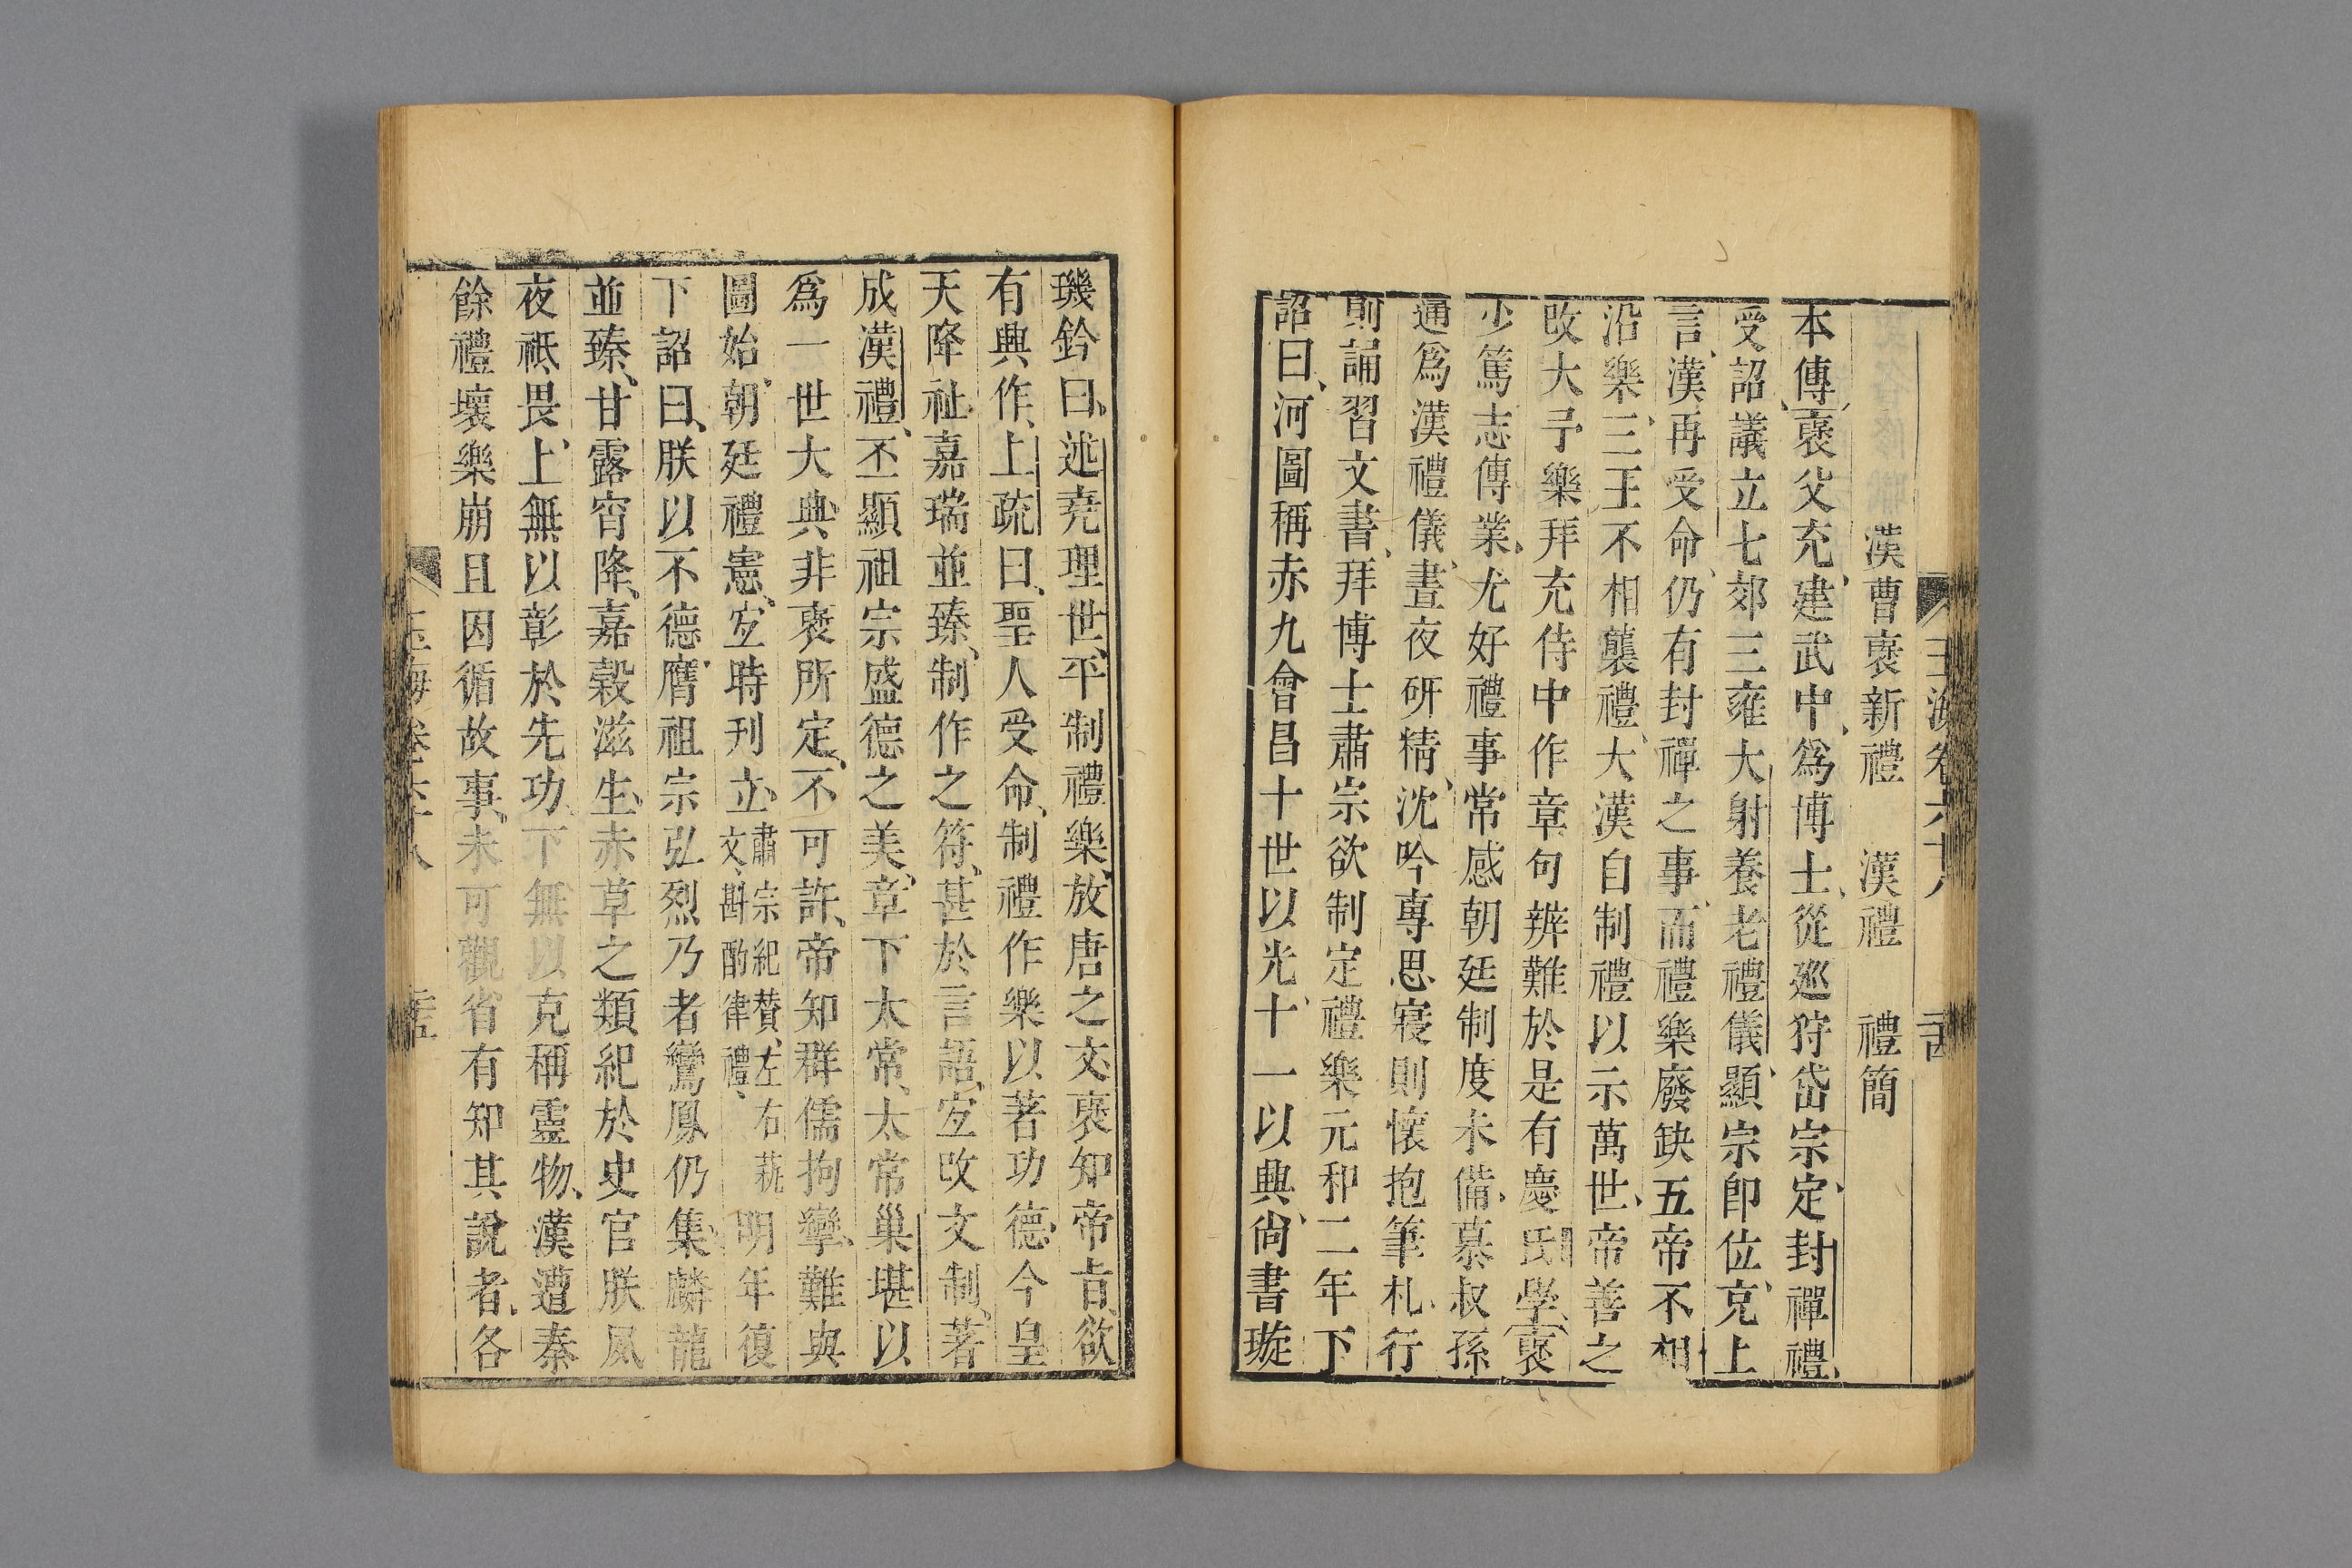 漢曹褒新禮 漢禮 禮簡
本傳褒父充建武中爲博士從巡狩岱宗定封禪禮
受詔議立七郊三雍大射養老禮儀顯宗即位充上
言漢再受命仍有封禪之事而禮樂廢缺五帝不相
沿樂三王不相襲禮大漢自制禮以示萬世帝善之
改大予樂拜充侍中作章句辨難於是有慶氏學褒
少篤志傳業尤好禮事常感朝廷制度未備慕叔孫
通爲漢禮儀晝夜研精沈吟專思寢則懷抱筆札行
則誦習文書拜博士肅宗欲制定禮樂元和二年下
詔曰河圖稱赤九會昌十世以光十一以興尚書璇
璣鈐曰述堯理世平制禮樂放唐之文褒知帝旨欲
有典作上疏曰聖人受命制禮作樂以著功德今皇
天降祉嘉瑞並臻制作之符甚於言語宐改文制著
成漢禮丕顯祖宗盛德之美章下太常太常巢堪以
爲一世大典非褒所定不可許帝知群儒拘攣難與
圖始朝廷禮憲宐時刋立肅宗紀贊左右蓺文斟酌律禮明年復
下詔曰朕以不德膺祖宗弘烈乃者鸞鳳仍集麟龍
並臻甘露宵降嘉穀滋生赤草之類紀於史官朕夙
夜祗畏上無以彰於先功下無以克稱靈物漢遭秦
餘禮壞樂崩且因循故事未可觀省有知其說者各